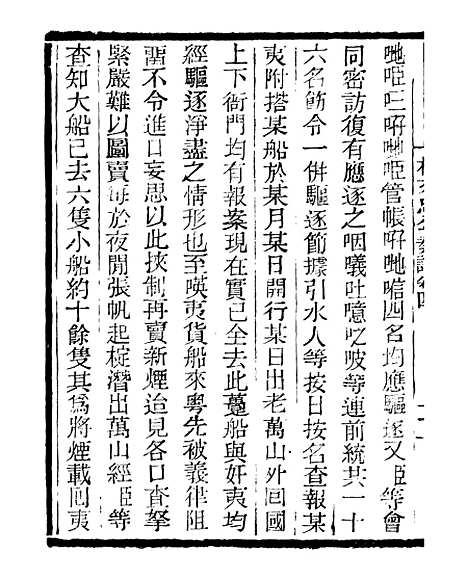 吔啞吐咿吔啞管帳咿吔唁四名均應驅逐又姫等會
同密訪復有應逐之咽囈吐噫吃吱等連前統共一十
六名飭令一併驅逐節據引水人等按日按名查報某
夷附搭某船於某月某日開行某日出老萬山外回國
上下衙門均有報案現在實已全去此躉船與奸夷均
經驅逐淨盡之情形也至暎夷貨船來粵先被義律阻
畱不令進口妄思以此挾制再賣新煙迨見各口查拏
緊嚴難以圖賣每於夜間張帆起椗潛出萬山經姫等
查知大船已去六隻小船約十餘隻其爲將煙載回夷